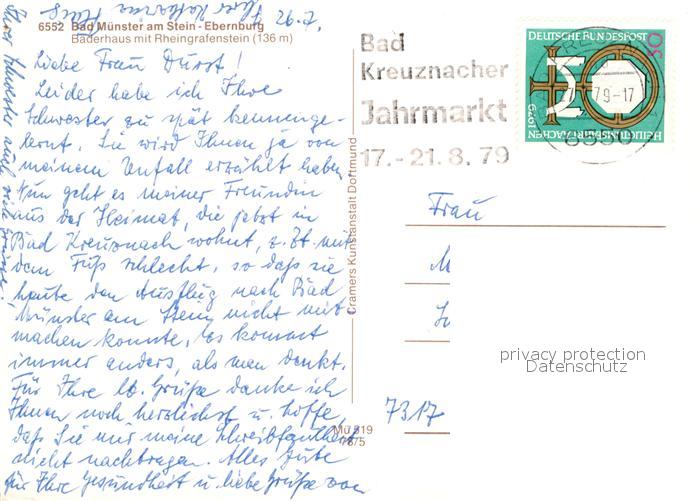 6552 Bad Münster am Stein - Ebernburg
Bäderhaus mit Rheingrafenstein (136 m)
26.7.
Liebe Frau Durst!
Leider habe ich Ihre
Schwester zu spät kennenge-
lernt. Sie wird Ihnen ja von
meinem Unfall erzählt haben.
Nun geht es meiner Freundin
aus der Heimat, die jetzt in
Bad Kreuznach wohnt, z. Zt. mit
dem Fuß schlecht, so daß sie
heute den Ausflug nach Bad
Münster am Stein nicht mit-
machen konnte. Es kommt
immer anders, als man denkt.
Für Ihre lb. Grüße danke ich
Ihnen noch herzlichst u. hoffe,
daß Sie mir meine Schreibfaulheit
nicht nachtragen. Alles Gute
für Ihre Gesundheit u. liebe Grüße von
Ihrer
Ihrer Schwester auch viele Grüße.
Cramers Kunstanstalt Dortmund
Mü 519
78/5
Bad
Kreuznacher
Jahrmarkt
17.-21.8.79
DEUTSCHE BUNDESPOST
50
HEILIGTUMSFAHRT AACHEN
1979
79-17
6550
Frau
M
7317
privacy protection
Datenschutz